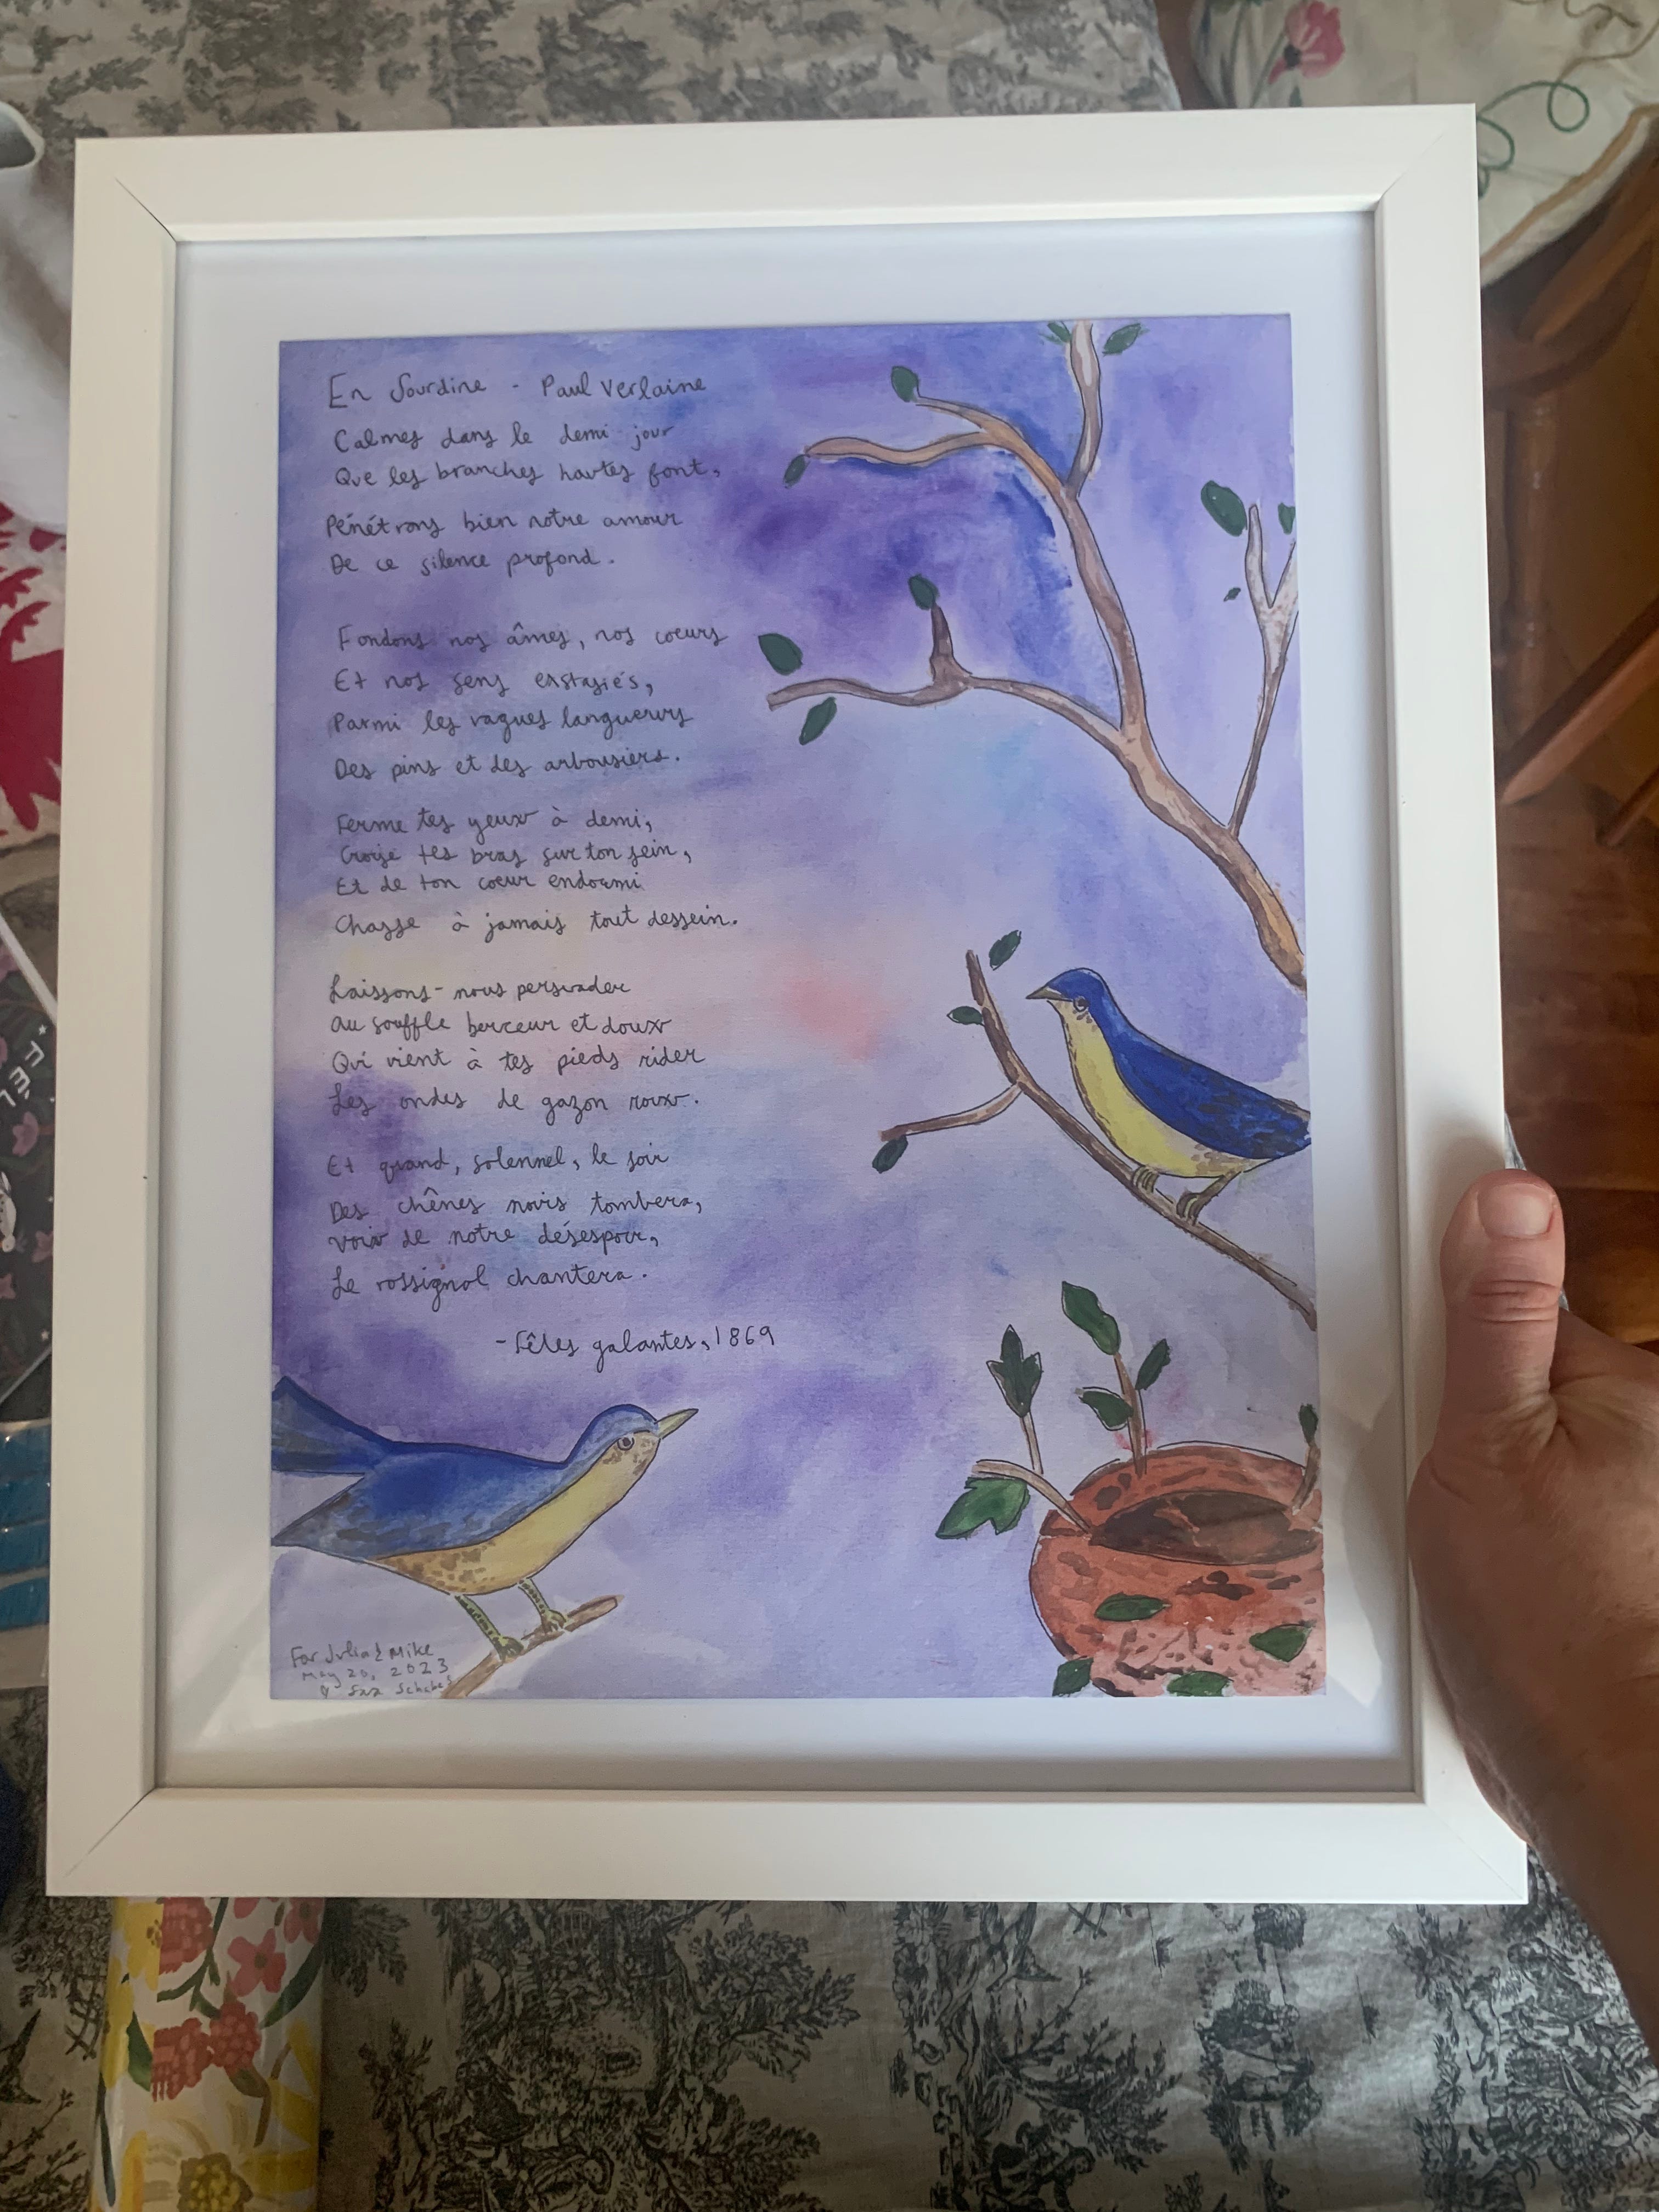 En Sourdine - Paul Verlaine
Calmes dans le demi jour
Que les branches hautes font,
Pénétrons bien notre amour
De ce silence profond.
Fondons nos âmes, nos coeurs
Et nos sens exstasiés,
Parmi les vagues langueurs
Des pins et des arbousiers.
Ferme tes yeux à demi,
Croise tes bras sur ton sein,
Et de ton coeur endormi
Chasse à jamais tout dessein.
Laissons-nous persuader
Au souffle berceur et doux
Qui vient à tes pieds rider
Les ondes de gazon roux.
Et quand, solennel, le soir
Des chênes noirs tombera,
Voix de notre désespoir,
Le rossignol chantera.
- Fêtes galantes, 1869
For Julia & Mike
May 20, 2023